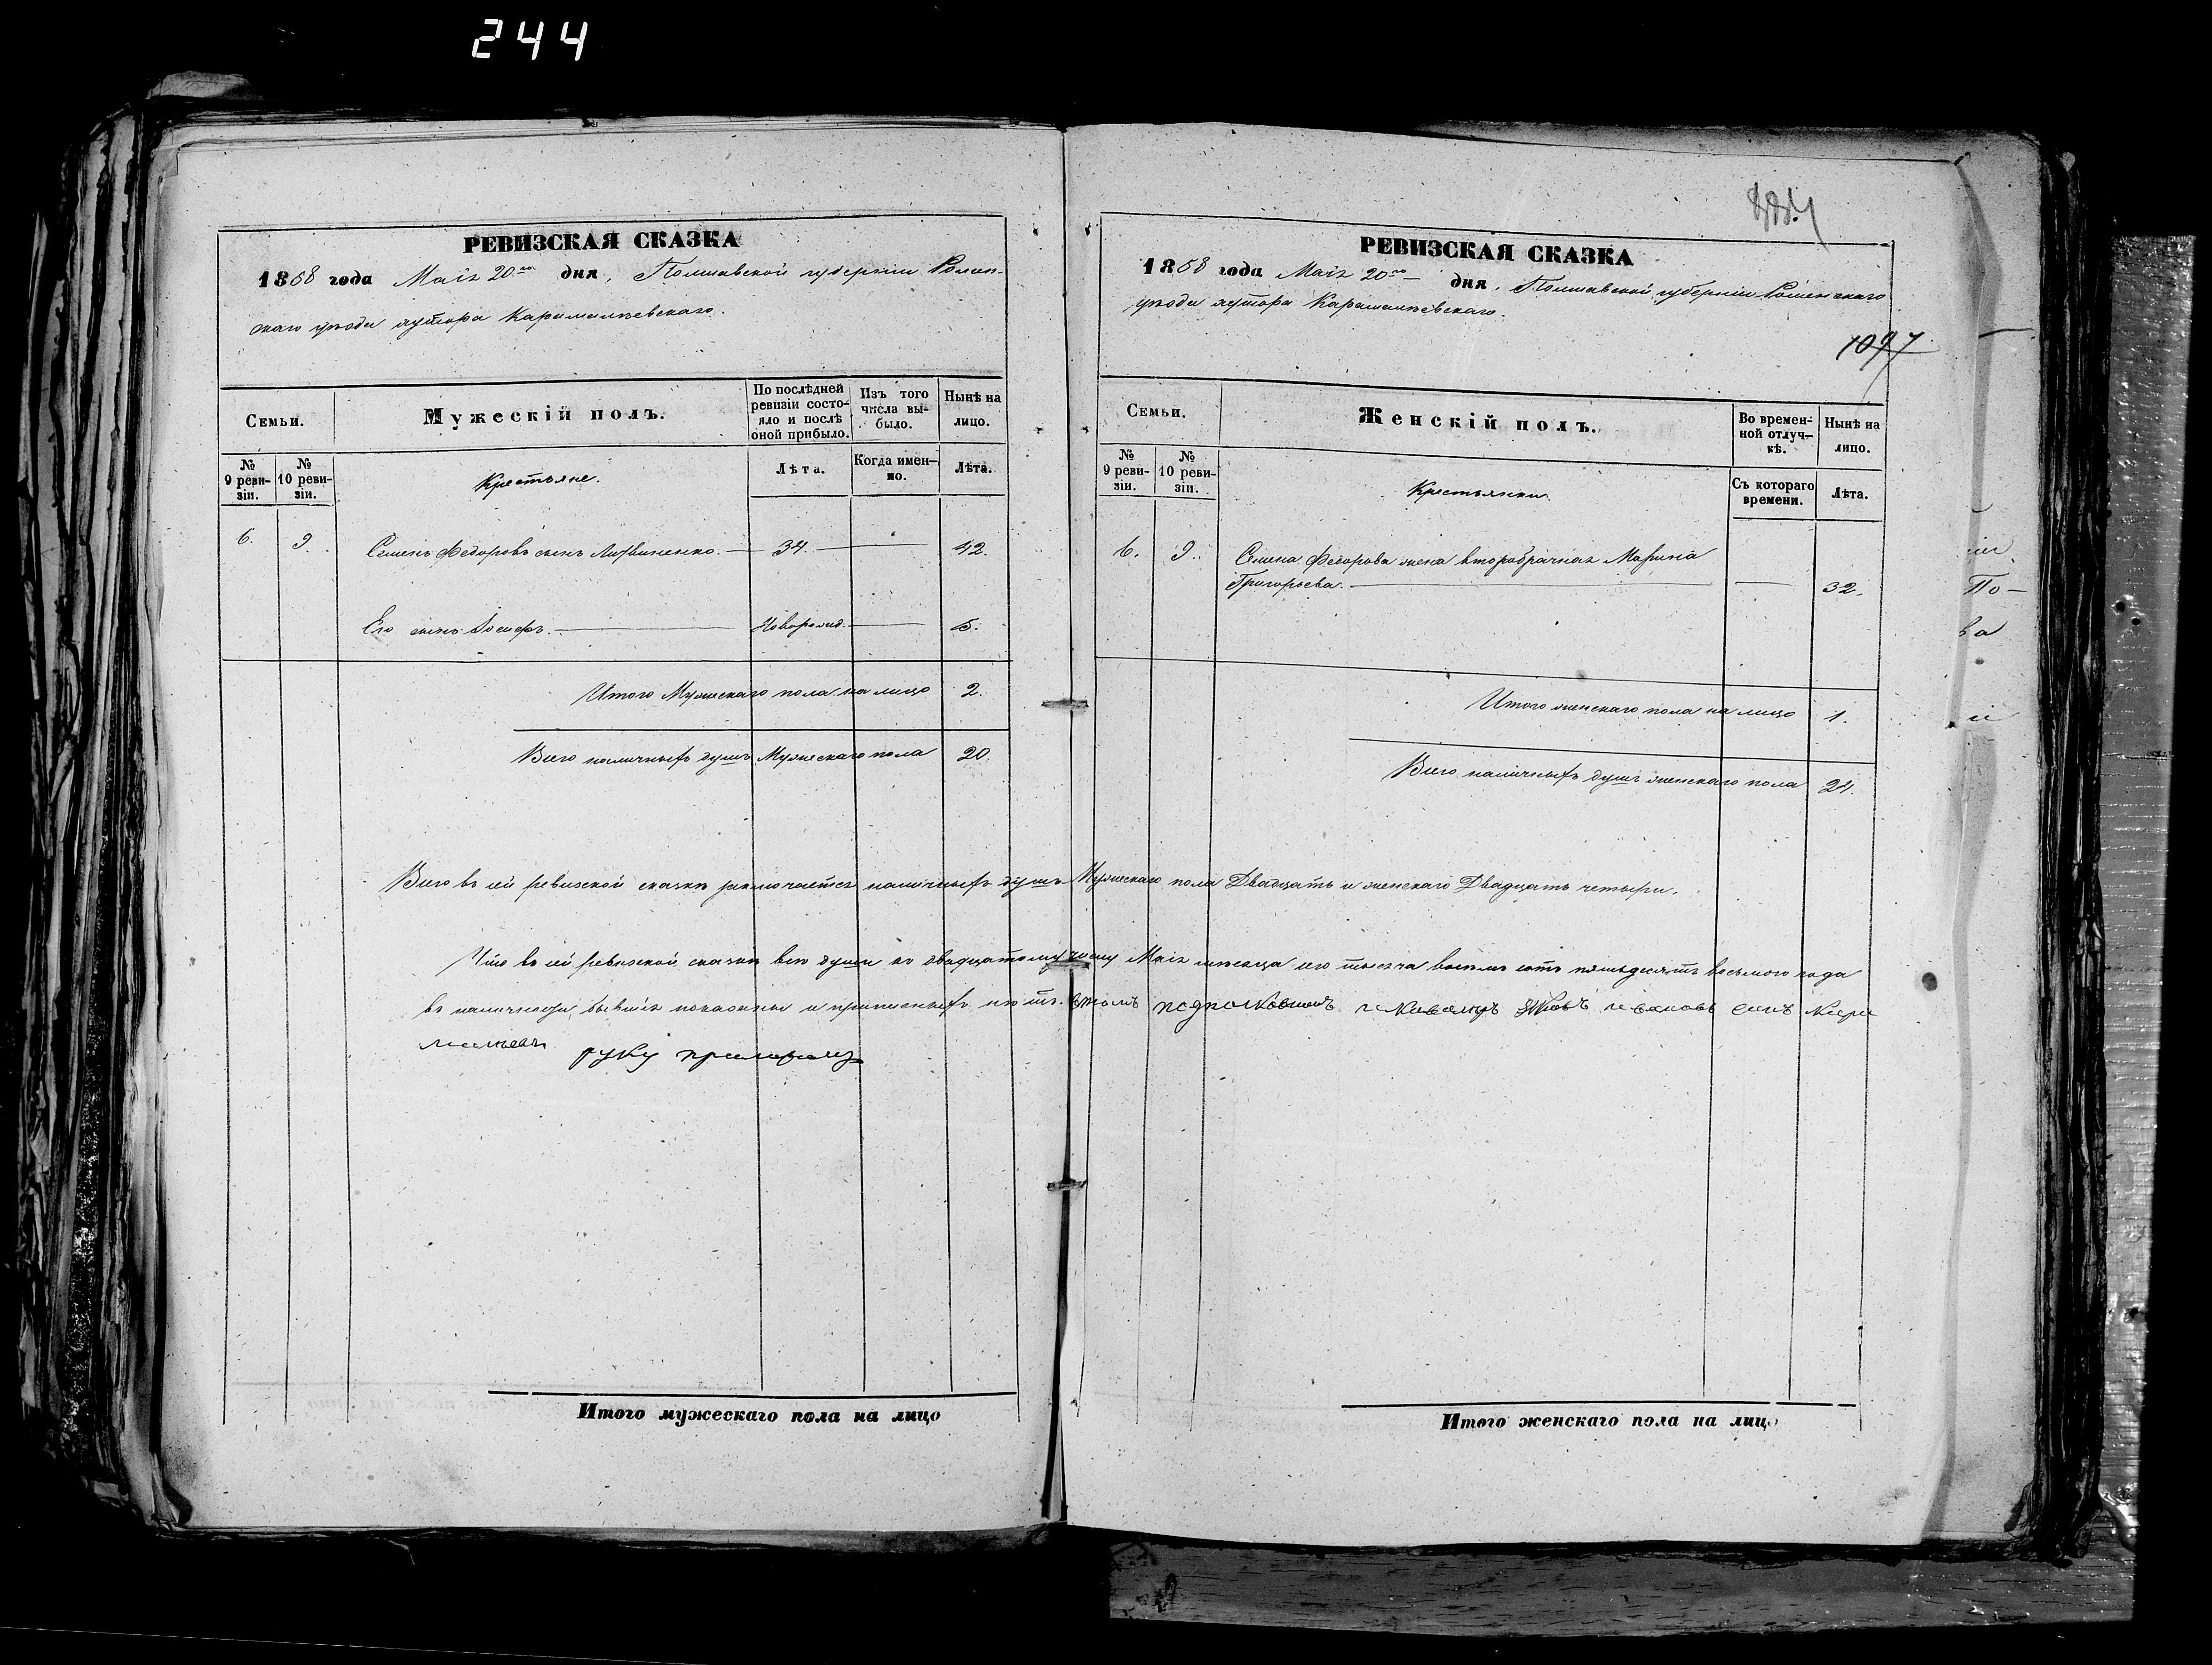 244
РЕВИЗСКАЯ СКАЗКА
1858 года Маія 20го дня, Полтавской губерніи Ромен-
скаго уѣзда хутора Карамалѣевскаго.
Семьи.
Мужескій полъ.
По послѣдней ревизіи состо- яло и послѣ оной прибыло.
Изъ того числа вы- было.
Нынѣ на лицо.
№ 9 реви- зіи.
№ 10 реви- зіи.
Крестьяне.
Лѣта.
Когда имен- но.
Лѣта.
6. 9. Семенъ Федоровъ сынъ Литвиненко. — 34. — 42.
Его сынъ Іосифъ. — Новорожд. — 5.
Итого Мужескаго пола на лицо 2.
Всего наличныхъ душъ Мужескаго пола 20.
РЕВИЗСКАЯ СКАЗКА
1858 года Маія 20го — дня, Полтавской губерніи Роменскаго
уѣзда хутора Карамалѣевскаго.
1097
Семьи.
Женскій полъ.
Во времен- ной отлуч- кѣ.
Нынѣ на лицо.
№ 9 реви- зіи.
№ 10 реви- зіи.
Крестьянки.
Съ котораго времени.
Лѣта.
6. 9. Семена Федорова жена второбрачная Марина
Григорьева. — — 32.
Итого женскаго пола на лицо 1.
Всего наличныхъ душъ женскаго пола 24.
Всего въ сей ревизской сказкѣ заключается наличныхъ душъ Мужескаго пола Двадцать и женскаго Двадцать четыри.
Что въ сей ревизской сказкѣ всѣ души къ двадцатому числу Маія мѣсяца сего тысяча восемь сотъ пятьдесятъ восьмого года
въ наличности бывшія показаны и прописныхъ нѣтъ. втомъ подполковникъ икавалеръ сынъ Кара
малѣевъ руку приложилъ
Итого мужескаго пола на лицо
Итого женскаго пола на лицо
По —
ва